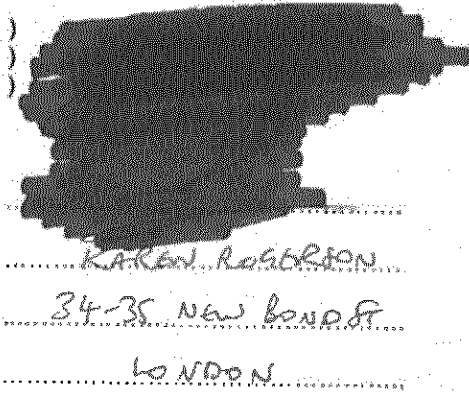 )
)
)
KAREN ROGERSON
34-35 NEW BOND ST
LONDON